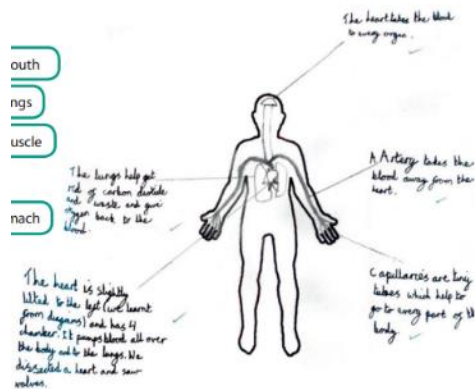 The heart takes the blood
to every organ.
outh
ngs
uscle
mach
The lungs help get
rid of carbon dioxide
and waste and give
oxygen back to the
blood.
A Artery takes the
blood away from the
heart.
The heart is slightly
tilted to the left (we learnt
from diagrams) and has 4
chamber. It pumps blood all over
the body and to the lungs. We
dissected a heart and saw
valves.
Capillaries are tiny
tubes which help to
go to every part of th
body.